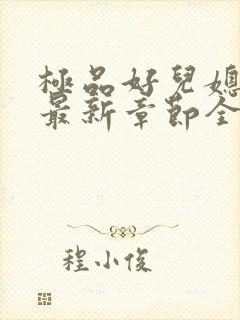 極品好兒媳
最新章節全
程小俊